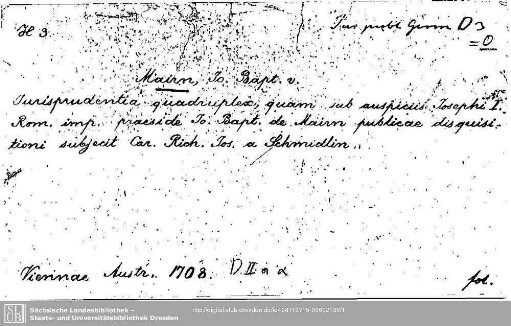 H 3
Jus publ. Germ D 3
= 0
Mairn, Jo. Bapt. v.
Jurisprudentia quadruplex, quam sub auspiciis Josephi I.
Rom. imp. praeside Jo. Bapt. de Mairn publicae disquisi-
tioni subjecit Car. Rich. Jos. a Schmidlin.
Viennae Austr. 1708. D II a α
fol.
SLUB
Sächsische Landesbibliothek –
Staats- und Universitätsbibliothek Dresden